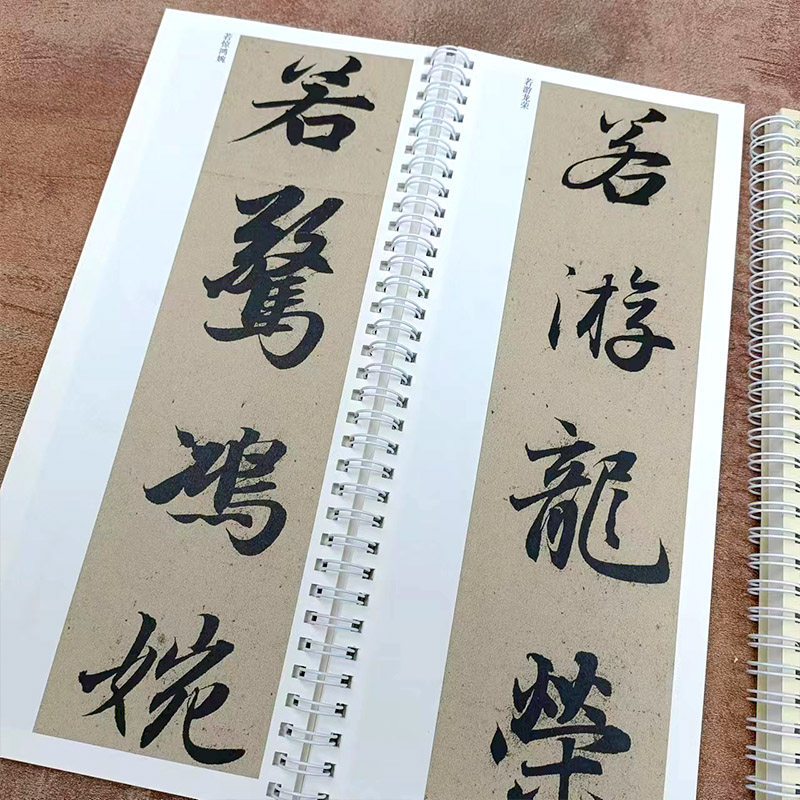 若惊鸿婉
若驚鴻婉
若游龙荣
若游龍榮